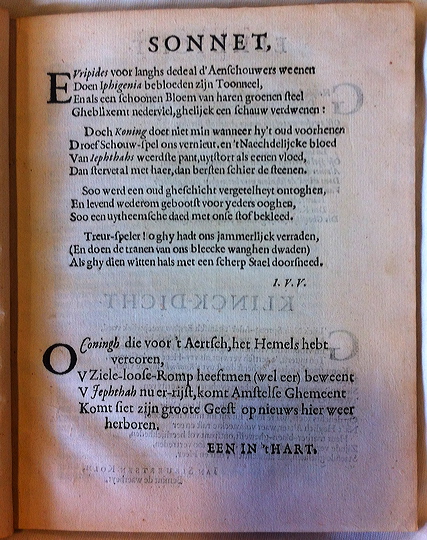 SONNET,
EVripides voor langhs dede al d'Aenschouwers weenen
Doen Iphigenia bebloeden zijn Tooneel,
En als een schoonen Bloem van haren groenen steel
Ghebllxemt nederviel, ghelijck een schauw verdwenen:
Doch Koning doet niet min wanneer hy't oud voorhenen
Droef Schouw-spel ons vernieut, en 't Naechdelijcke bloed
Van Iephthahs weerdste pant, uytstort als eenen vloed,
Dan stervet al met haer, dan bersten schier de steenen.
Soo werd een oud gheschicht vergetelheyt ontoghen,
En levend wederom gebootst voor yeders ooghen,
Soo een uytheemsche daed met onse stof bekleed.
Treur-speler! o ghy hadt ons jammerlijck verraden,
(En doen de tranen van ons bleecke wanghen dwaden)
Als ghy dien witten hals met een scherp Stael doorsneed.
I. V. V.
O Coningh die voor 't Aertsch, het Hemels hebt
vercoren,
V Ziele-loose-Romp heeftmen (wel eer) beweent
V Jephthah nu er-rijst, komt Amstelse Ghemeent
Komt siet zijn groote Geest op nieuws hier weer
herboren.
EEN IN 'tHART.
KLINCK-DICHT